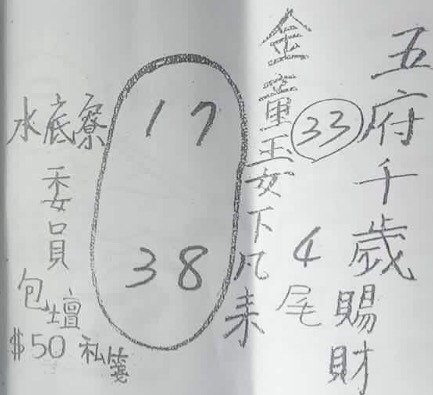 五府千歲賜財
33
4尾
金童玉女下凡來
17
38
水底寮
委員
包壇
$50 私箋